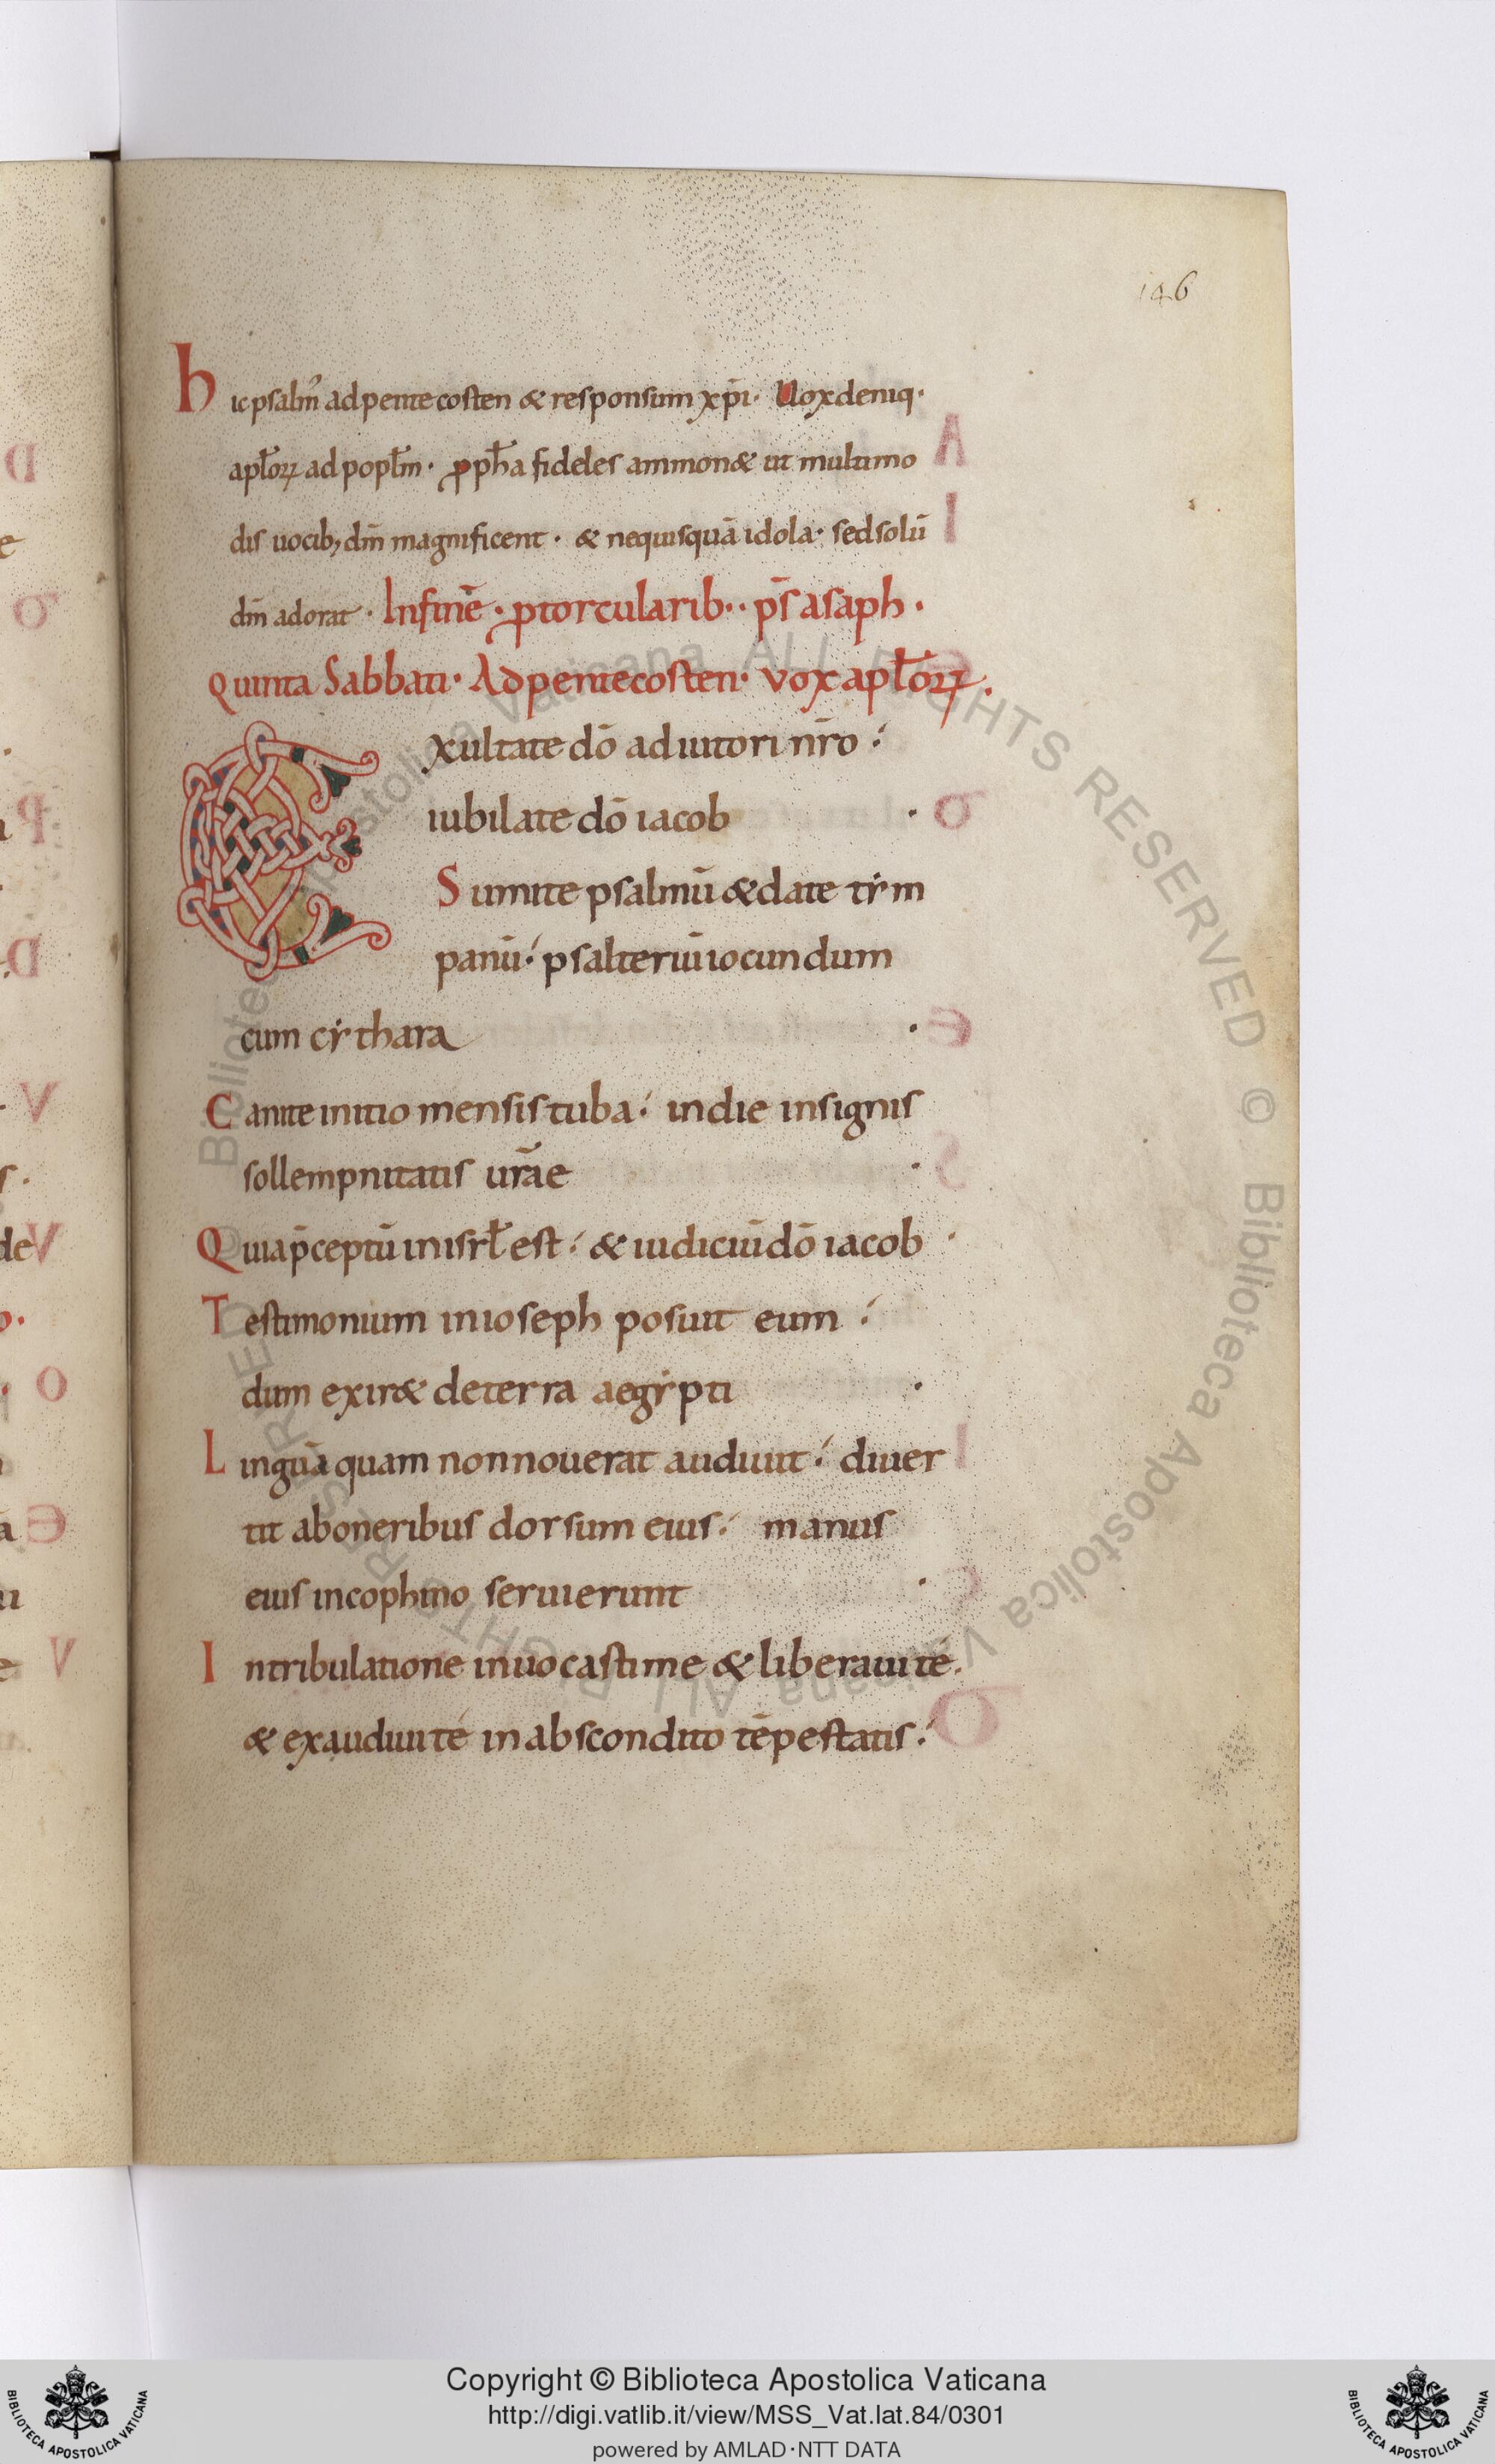 146
hic psalm̄ ad pentecosten & responsum xp̄i· Uox deniq·
apl̄oꝝ ad popl̄m· ꝓph̄a fideles ammon& ut multimo
dis uocib; dm̄ magnificent· & nequisquā idola· sed solū
dm̄ adorat· Infinē· ꝓtorcularib·· ps̄ asaph·
Quinta Sabbati· Ad pentecosten· vox apl̄oꝝ.
Exultate dō adiutori nr̄o:
iubilate dō iacob ·
Sumite psalmū & date tẏm
panū: psalteriū iocundum
cum cẏthara ·
Canite initio mensis tuba: in die insignis
sollempnitatis urāe ·
Quia p̄ceptū in isrl̄ est: & iudiciū dō iacob ·
Testimonium in ioseph posuit eum:
dum exir& de terra aegẏpti ·
Linguā quam non nouerat audiuit: diuer
tit ab oneribus dorsum eius: manus
eius in cophino seruierunt ·
In tribulatione inuocasti me & liberaui té.
& exaudiui té in abscondito tēpestatis:
Copyright © Biblioteca Apostolica Vaticana
http://digi.vatlib.it/view/MSS_Vat.lat.84/0301
powered by AMLAD·NTT DATA
BIBLIOTECA APOSTOLICA VATICANA
BIBLIOTECA APOSTOLICA VATICANA